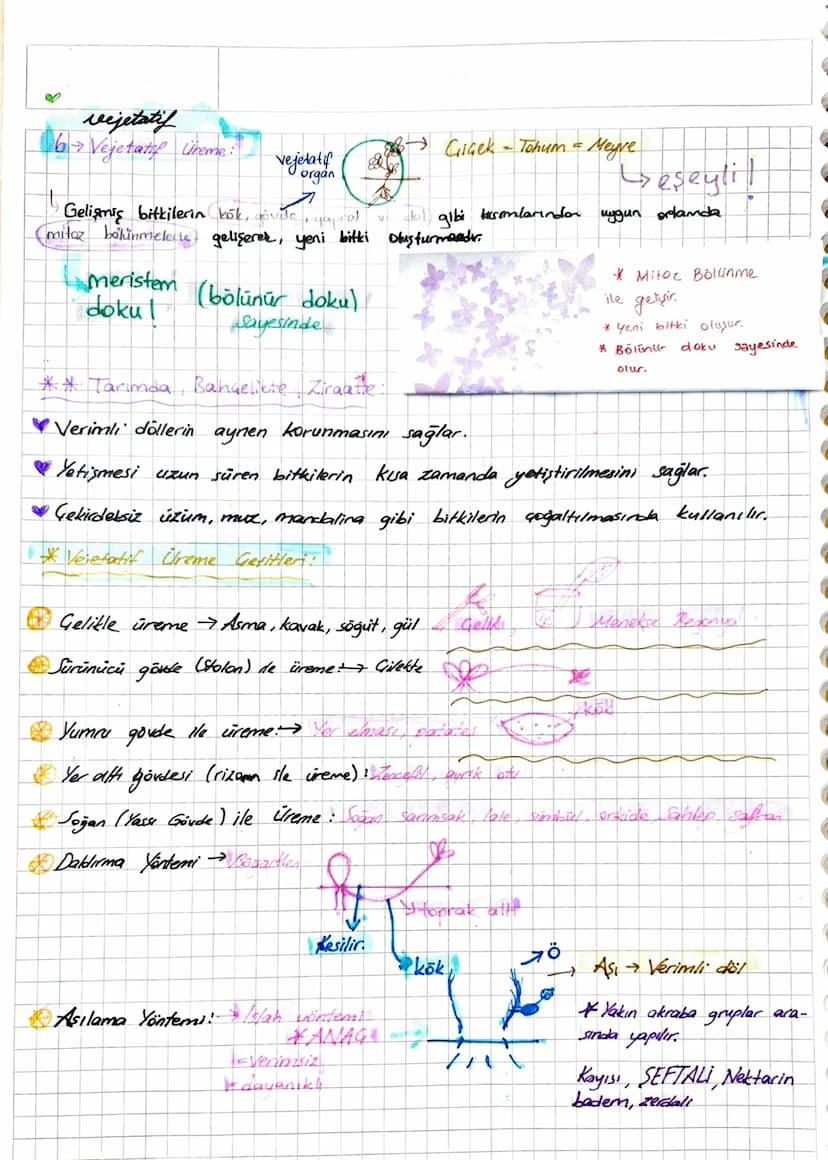 vejetatif
b → Vejetatif Üreme:
vejetatif organ
→ Çiçek - Tohum = Meyve
↳ eşeyli!
Gelişmiş bitkilerin (kök, gövde, yaprak ve dal) gibi kısımlarından uygun ortamda
(mitoz bölünmelerle) gelişerek, yeni bitki oluşturmasıdır.
meristem doku!
(bölünür doku)
sayesinde
* Mitoz Bölünme
ile gelişir.
* Yeni bitki oluşur.
* Bölünür doku sayesinde
olur.
** Tarımda, Bahçelikte, Ziraatte:
Verimli döllerin aynen korunmasını sağlar.
Yetişmesi uzun süren bitkilerin kısa zamanda yetiştirilmesini sağlar.
Çekirdeksiz üzüm, muz, mandalina gibi bitkilerin çoğaltılmasında kullanılır.
* Vejetatif Üreme Çeşitleri:
Çelikle üreme → Asma, kavak, söğüt, gül
Çelik,
Menekşe Begonya
Sürünücü gövde (Stolon) ile üreme: → Çilekte
Yumru gövde ile üreme: → Yer elması, patates
kök
Yer altı gövdesi (rizom ile üreme): Zencefil, ayrık otu
Soğan (Yassı Gövde) ile Üreme: Soğan sarımsak, lale, sümbül, orkide, Sahlep, safran
Daldırma Yöntemi → Böğürtlen
→ toprak altı
Kesilir.
kök
→ Ö
→ Aşı → Verimli döl
Aşılama Yöntemi: → Islah yöntemi
* ANAÇ
→ verimsiz
→ dayanıklı
* Yakın akraba gruplar ara-
sında yapılır.
Kayısı, ŞEFTALİ, Nektarin
badem, zerdali